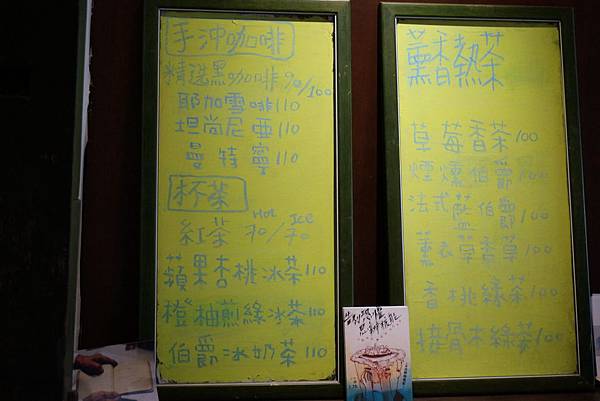 手沖咖啡
精選黑咖啡90/100
耶加雪啡110
坦尚尼亞110
曼特寧110
杯茶
Hot Ice
紅茶 70/70
蘋果杏桃冰茶110
橙柚煎綠冰茶110
伯爵冰奶茶110
薰香熱茶
草莓香茶100
煙燻伯爵100
法式藍伯爵100
薰衣草香草100
香桃綠茶100
接骨木綠茶100